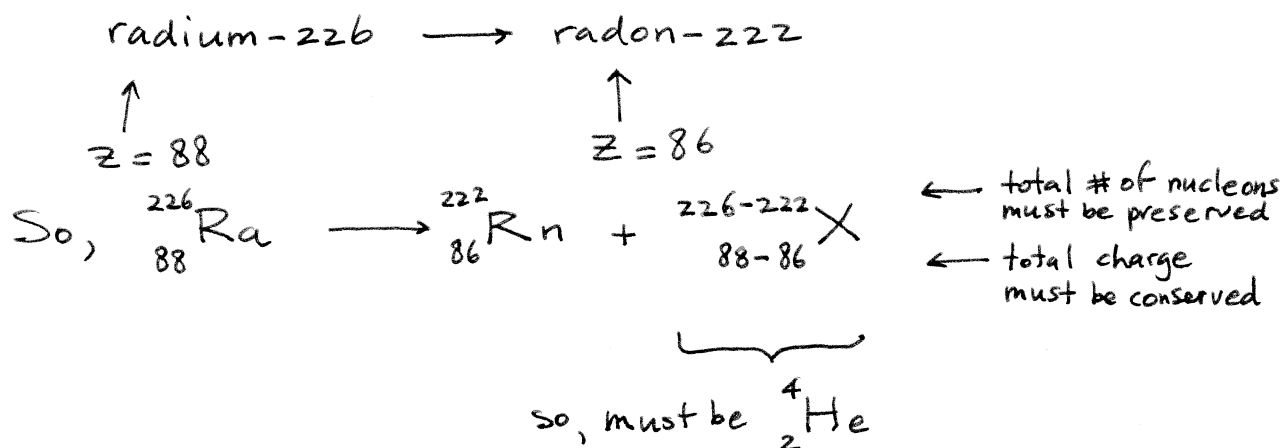 radium-226 ⟶ radon-222
↑ ↑
Z = 88 Z = 86
So, ²²⁶₈₈Ra ⟶ ²²²₈₆Rn + ²²⁶⁻²²²₈₈₋₈₆X
← total # of nucleons
must be preserved
← total charge
must be conserved
so, must be ⁴₂He